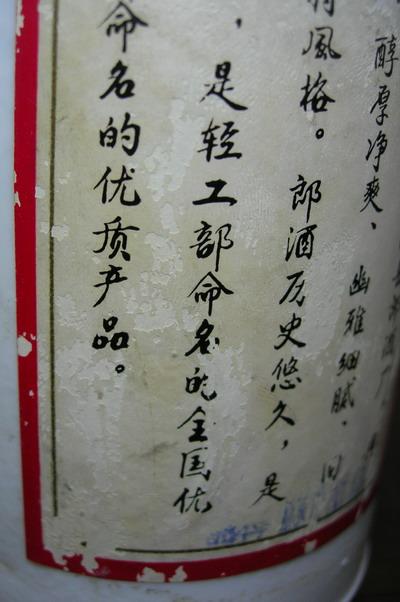 醇厚净爽、幽雅细腻、回
風格。郎酒历史悠久，是
，是轻工部命名的全国优
命名的优质产品。